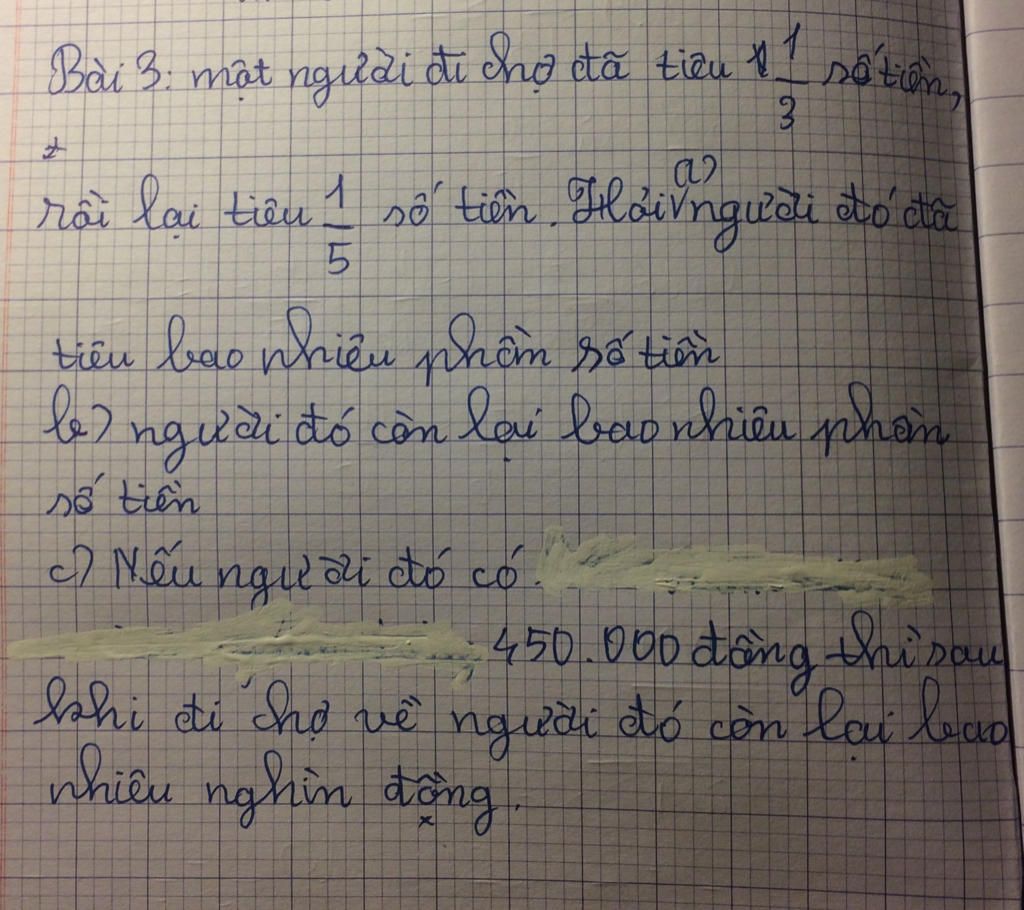 Bài 3: một người đi chợ đã tiêu 1/3 số tiền,
rồi lại tiêu 1/5 số tiền. Hỏi a) người đó đã
tiêu bao nhiêu phần số tiền
b) người đó còn lại bao nhiêu phần
số tiền
c) Nếu người đó có
450.000 đồng thì sau
khi đi chợ về người đó còn lại bao
nhiêu nghìn đồng.